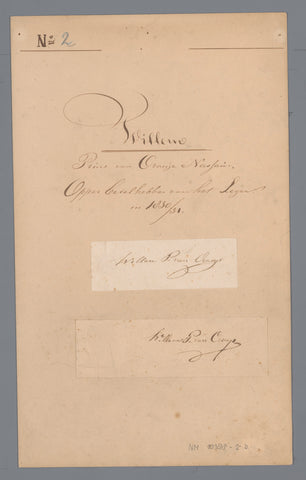 No. 2
Willem
Prins van Oranje Nassau.
Opper bevelhebber van het Leger
in 1830/31.
Willem Prins Oranje
Willem Prins Oranje
NM